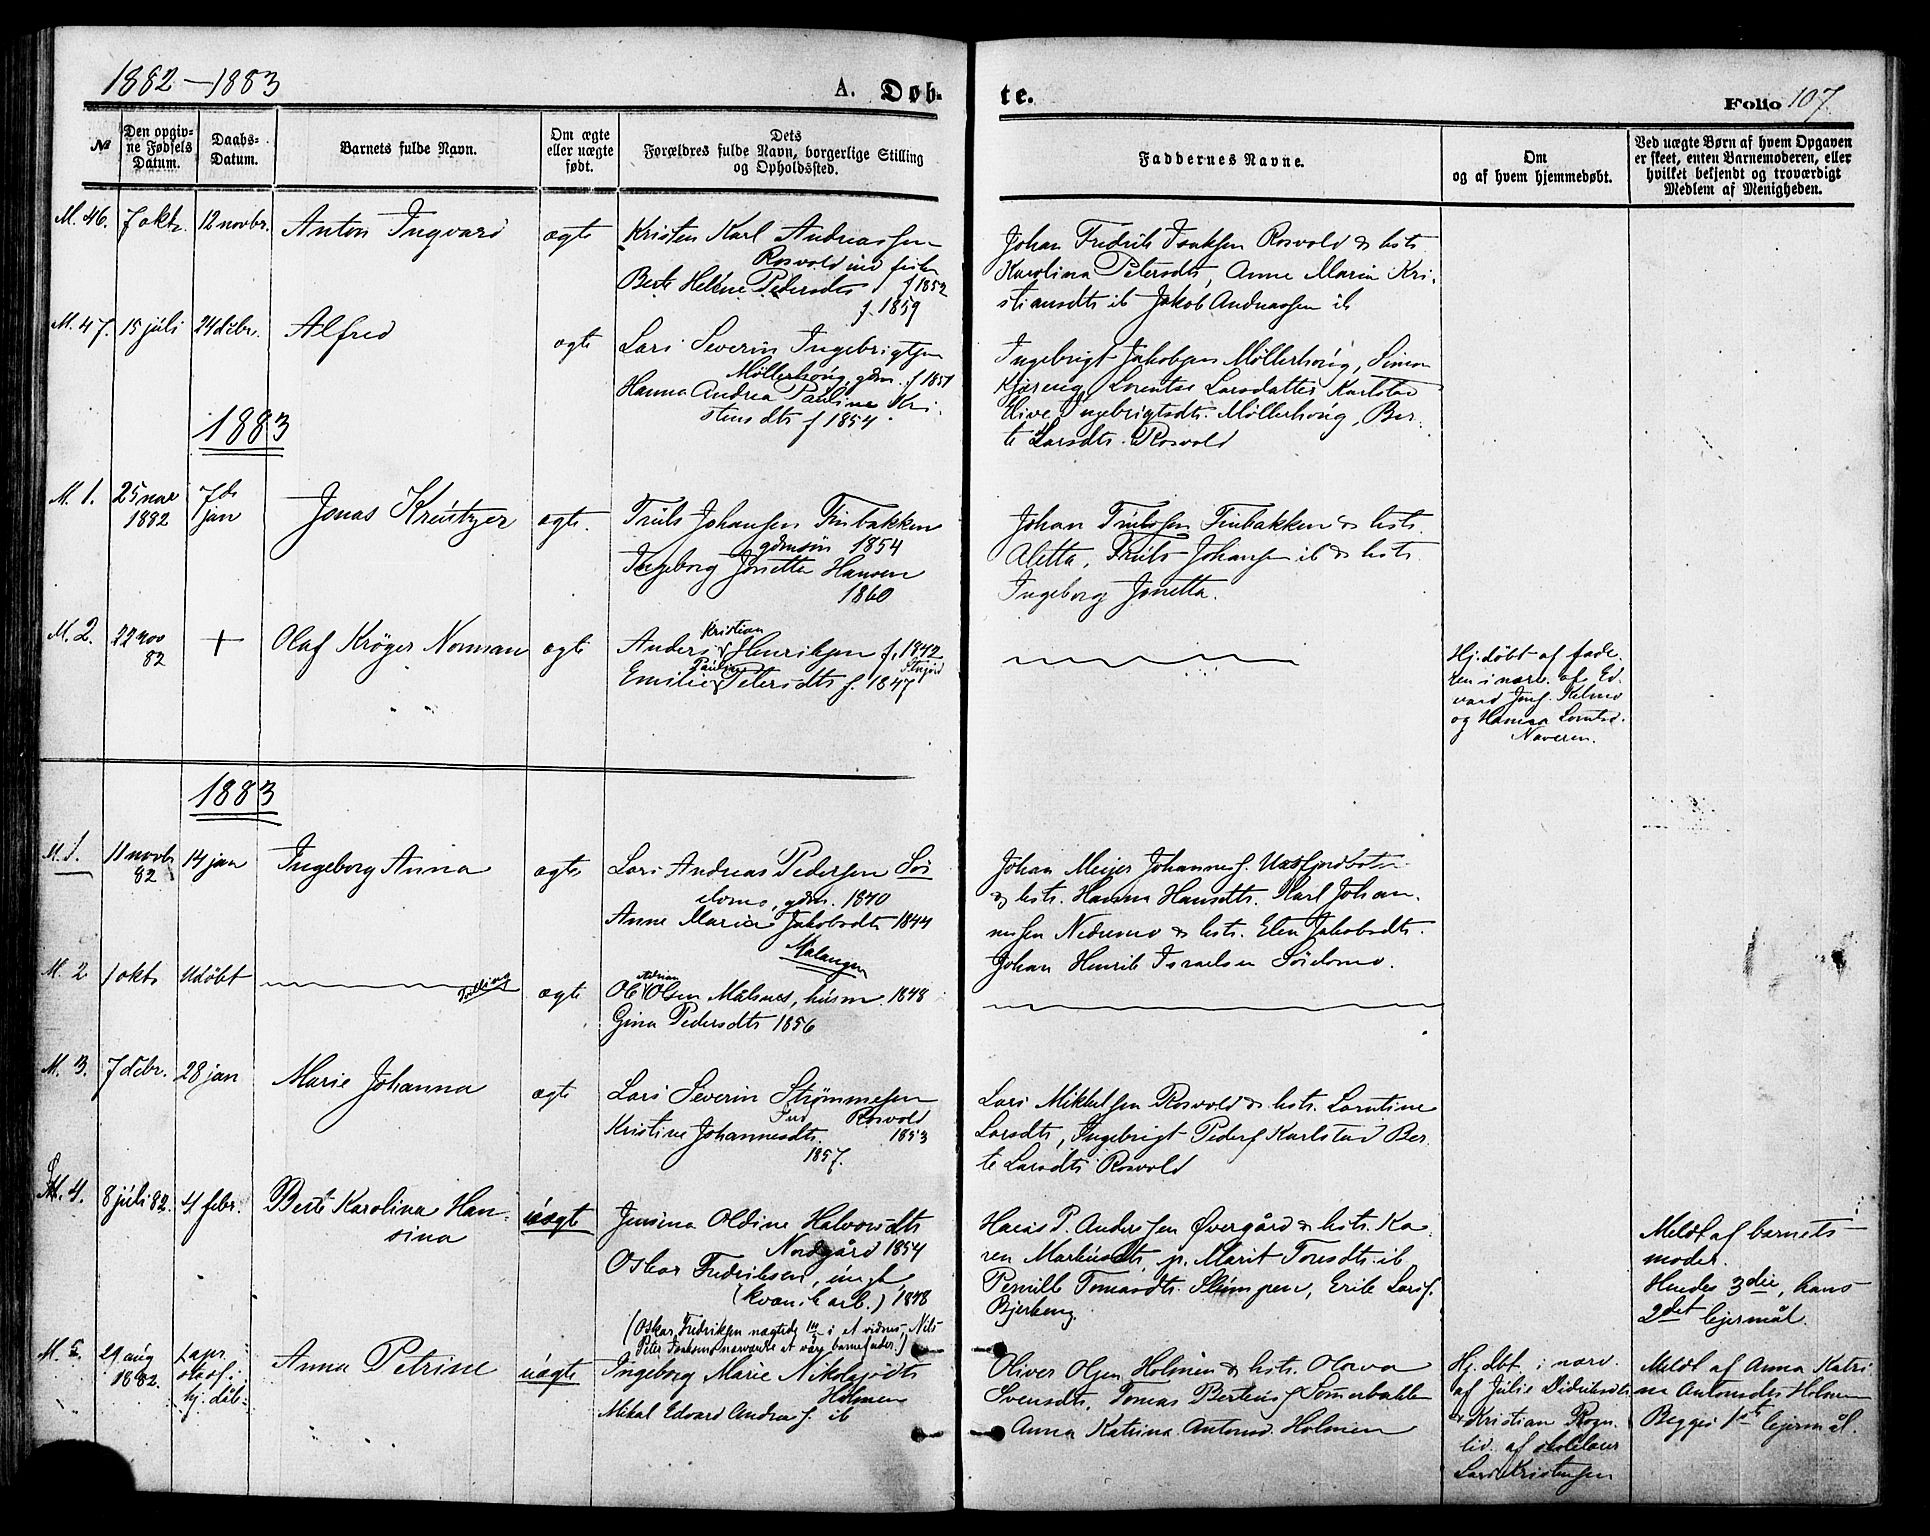 1882-1883
A. Døb-
te.
Folio 107.
№
Den opgiv-
ne Fødsels
Datum.
Daabs-
Datum.
Barnets fulde Navn.
Om ægte
eller uægte
født.
Dets
Forældres fulde Navn, borgerlige Stilling
og Opholdssted.
Faddernes Navne.
Om
og af hvem hjemmedøbt.
Ved uægte Børn af hvem Opgaven
er skeet, enten Barnemoderen, eller
hvilket bekjendt og troværdigt
Medlem af Menigheden.
M. 46. 7 oktr. 12 novbr. Anton Ingvard ægte
Kristen Karl Andreassen
Rosvold ind
Berte Helene Pedersdts f 1852
f. 1859
Johan Fredrik Isaksen Rosvold & hstr
Karolina Petersdts, Anne Maria Kri-
stiansdts ib Jakob Andreassen ib
M. 47. 15 juli 24 debr. Alfred ægte
Lars Severin Ingebrigtsen
Møllerhoúg, gdm. f 1851
Hanna Andrea Pauline Kri-
stensdts f 1854.
Ingebrigt Jakobsen Møllerhoúg, Simon
Kjæreng, Lorentse Larsdatter Karlstad
Elive Ingebrigtsdts. Møllerhoúg, Ber-
te Larsdts. Rosvold
1883
M. 1. 25 mar
1882
7de
jan
Jonas Kreútzer ægte.
Trúls Johansen Finbakken
gdmsøn 1854
Ingeborg Jonetta Hansen
1860
Johan Trúlssen Finbakken & hstr.
Aletta, Trúls Johansen ib & hstr.
Ingeborg Jonetta.
M. 2. 22 nov
82
+ Olaf Krøger Norman ægte
Kristian
Anders Henriksen f. 1842
Paulina
Emilie Petersdts f. 1847
Hj. døbt af fade-
ren i nærv. af Ed-
vard Jens. Kelmo
og Hanna Lorntsd.
Naveren.
1883
M. 1. 11 novbr
82
14 jan Ingeborg Anna ægte
Lars Andreas Pedersen Søi
domo, gdm. 1840
Anne Maria Jakobsdts 1844
Johan Meijer Johannes. Uxsfjordbotn
& hstr. Hanna Hansdts. Karl Johan-
nesen Nedremo & hstr. Elen Jakobsdts.
Johan Henrik Israelsen Søidomo.
M. 2 1 okt. Udøbt
Tvilling
ægte
Malangen
Adrian
Ole Olsen Målsnes, húsm. 1848
Gina Pedersdts 1856
M. 3. 7 debr. 28 jan Marie Johanna ægte
Lars Severin Strømmesen
Ind. Rosvold
Kristine Johannesdts. 1853
1857.
Lars Mikkelsen Rosvold & hstr. Lorntine
Larsdts, Ingebrigt Peders Karlstad Ber-
te Larsdts Rosvold
M. 4. 8 júli 82. 4 febr. Berte Karolina Han-
sina
úægte
Jensina Oldine Halvorsdts
Nordgård 1854
Oskar Fredriksen, úngk.
(kvænsk arb.) 1848
(Oskar Fredriksen nægtede i et vidnes, Nils
Peter Isaksens nærværelse at være barnefader.)
Hans P. Anderssen Øvergård & hstr. Ka-
ren Markúsdts, p. Marit Toresdts. ib
Pernille Tomasdts. Slimpene, Erik Lars.
Bjerkeng.
Meldt af barnets
moder.
Hendes 3die, hans
2det lejermål.
M. 5. 29 aúg
1882.
hj. dåb.
Anna Petrine úægte
Ingeborg Marie Nikolajsdts
Holmen
Mikal Edvard Andreas. ib
Oliver Olsen Holmen & hstr. Olava
Svensdts, Tomas Berteús. Sommerbakken
Anna Katrina Antonsd. Holmen
Hj. dbt. i nærv.
af Júlie Didriksdts
& Kristian Rogn-
lid. af skolelærer
Lars Kristensen
Meldt af Anna Katri-
na Antonsdts Holmen
Begges 1ste lejermål.